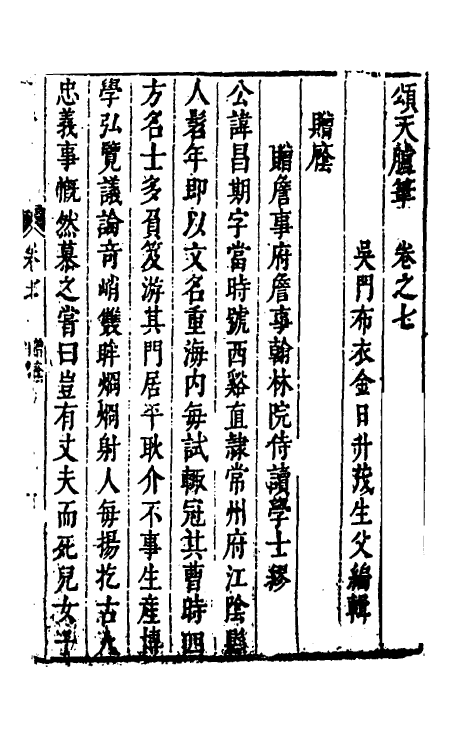 頌天臚筆　卷之七
吳門布衣金日升茂生父編輯
贈廕
贈詹事府詹事翰林院侍讀學士繆
公諱昌期字當時號西谿直隸常州府江陰縣
人髫年即以文名重海內每試輙冠其曹時四
方名士多負笈游其門居平耿介不事生產博
學弘覽議論奇峭雙眸烱烱射人每揚扢古人
忠義事慨然慕之嘗曰豈有丈夫而死兒女子
卷七
贈廕